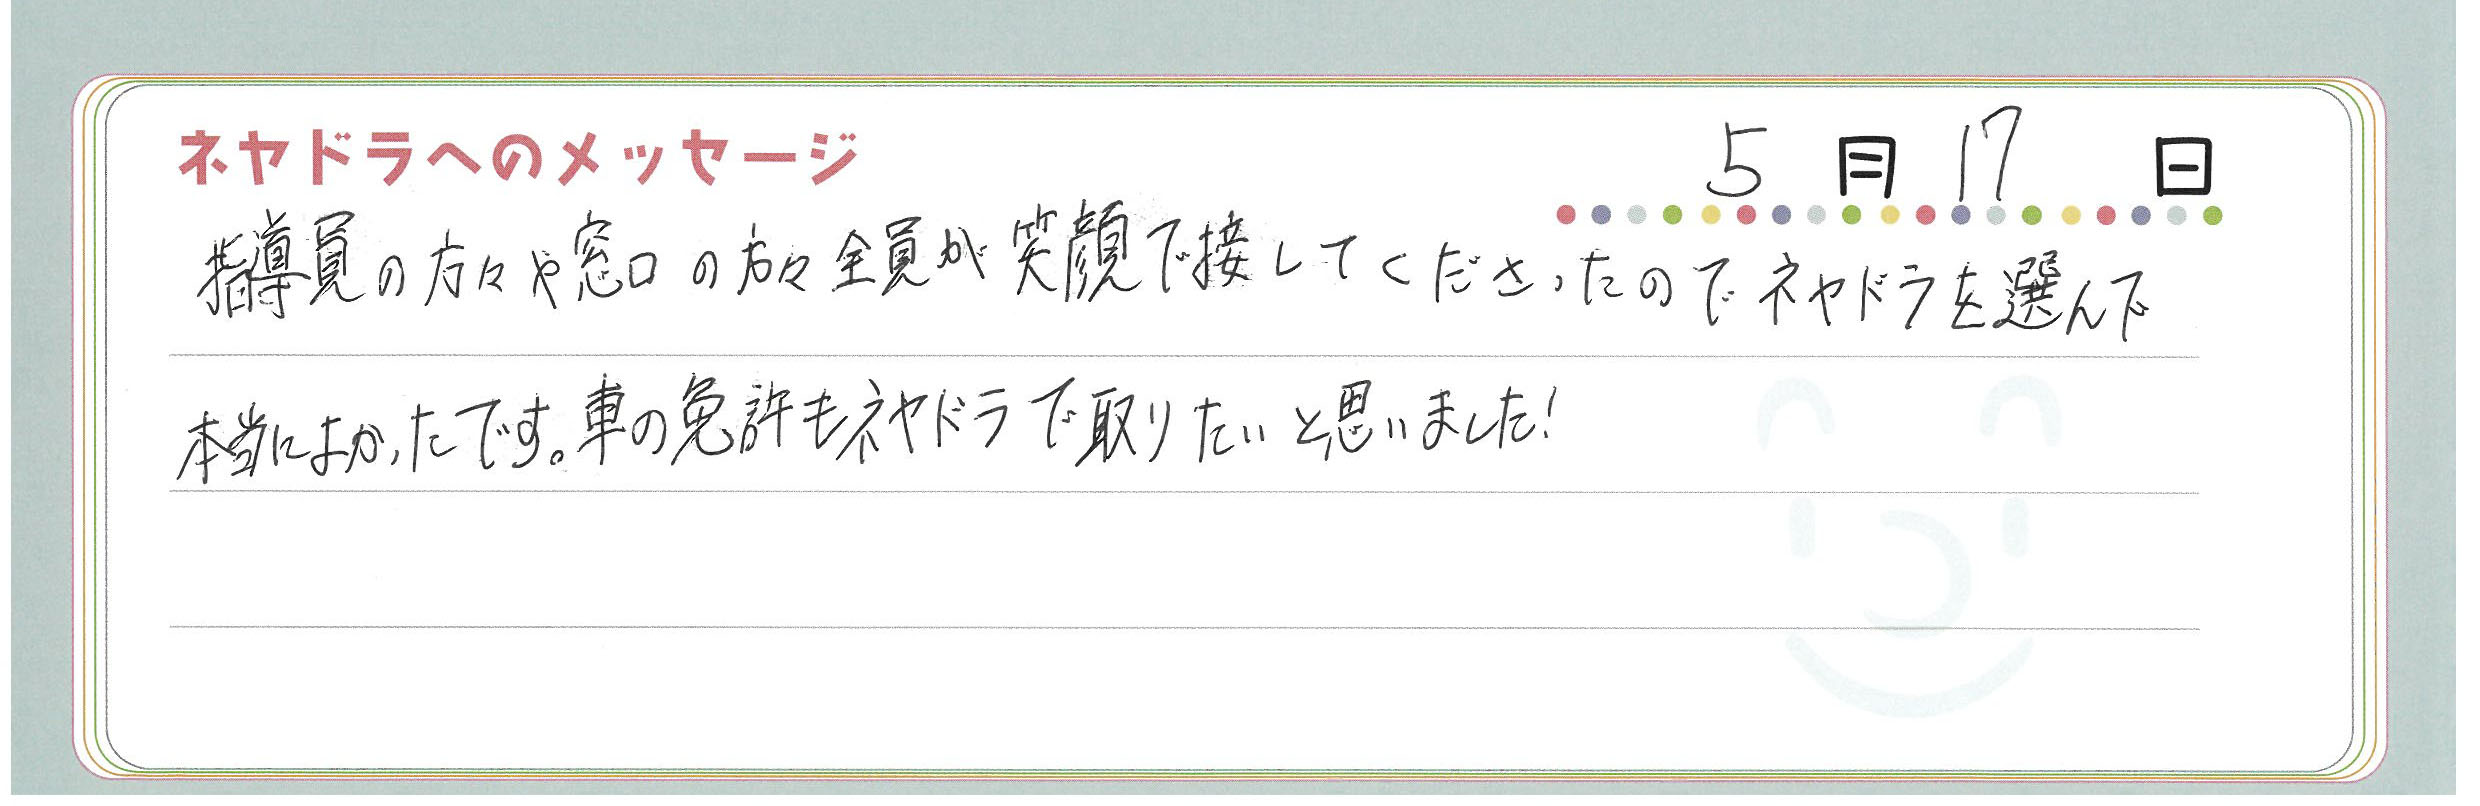 ネヤドラへのメッセージ
5月17日
指導員の方々や窓口の方々全員が笑顔で接してくださったのでネヤドラを選んで
本当によかったです。車の免許もネヤドラで取りたいと思いました!